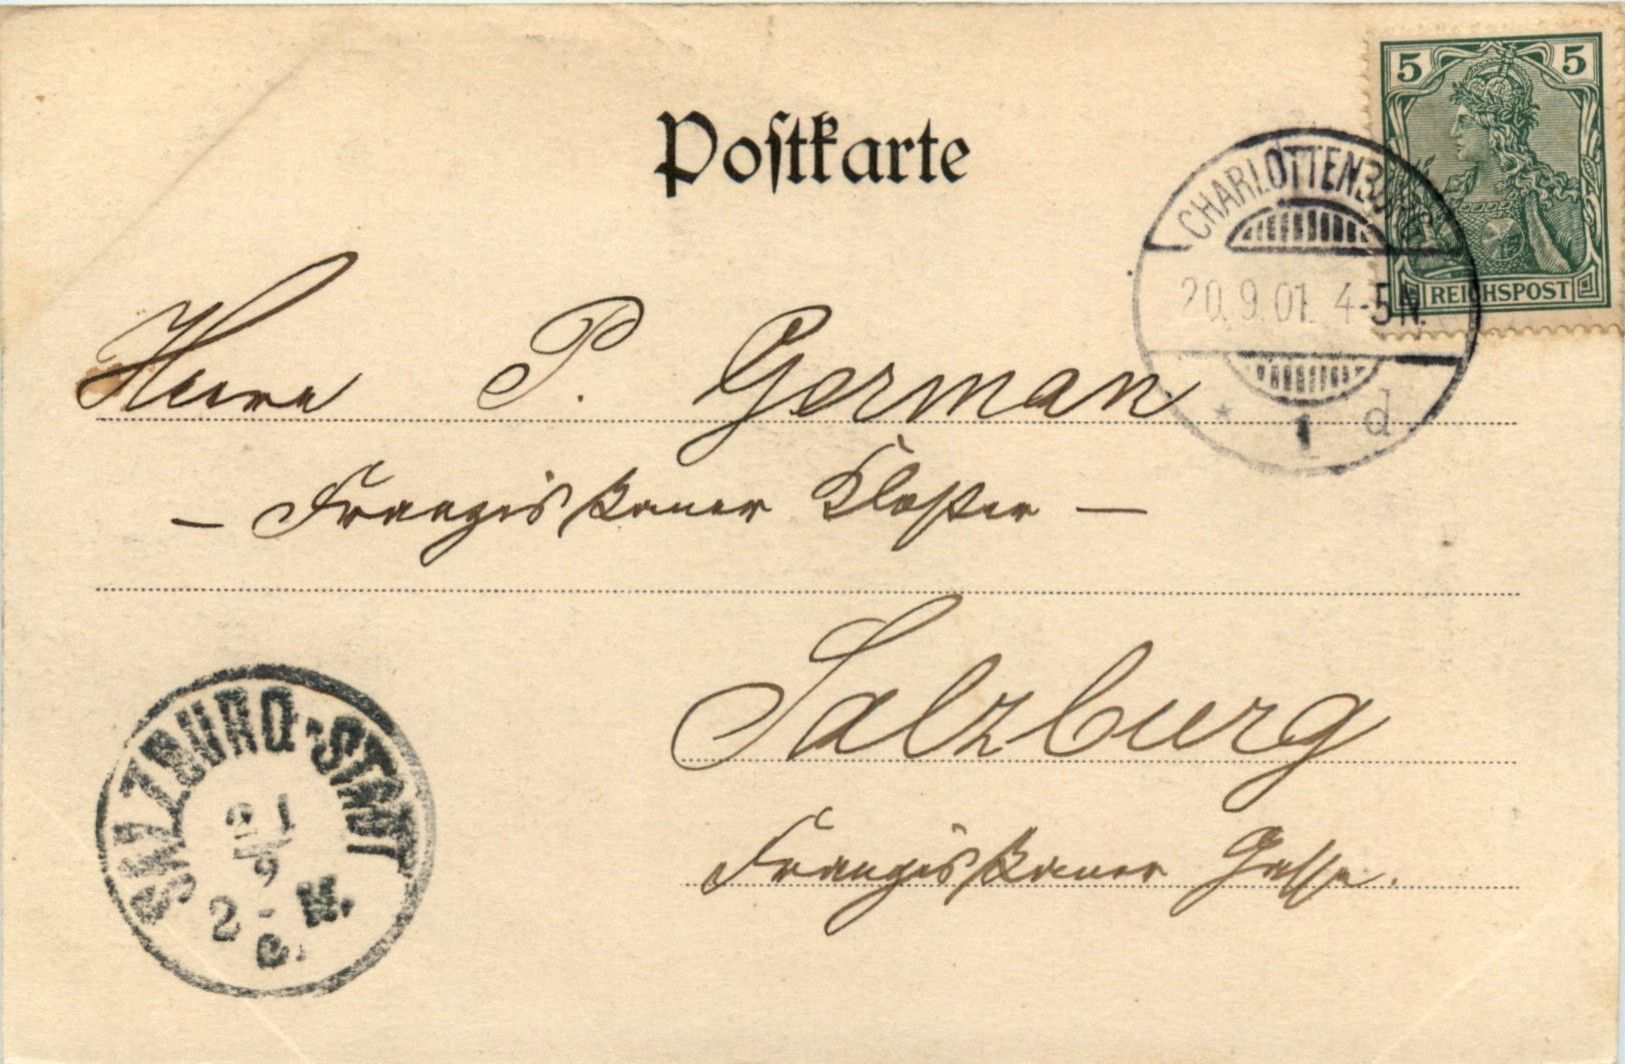 5 5
Postkarte
REICHSPOST
CHARLOTTENBURG
20.9.01. 4-5N.
* 1 d
Herrn P. German
– Franziskaner Kloster –
Salzburg
Franziskaner Gasse.
SALZBURG-STADT
21
9
2 - N.